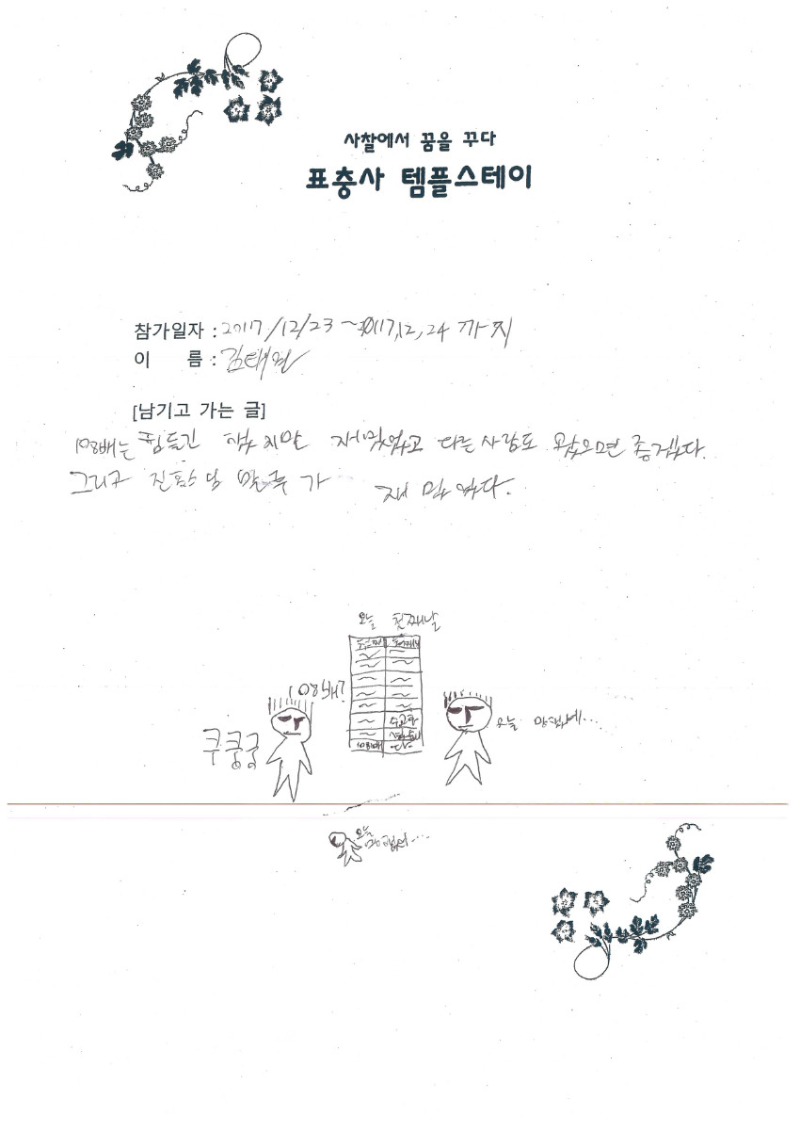 사찰에서 꿈을 꾸다
표충사 템플스테이
참가일자 : 2017/12/23 ~ 2017,12,24 까지
이 름 : 김태원
[남기고 가는 글]
108배는 힘들긴 했지만 재밌었고 다른 사람도 왔으면 좋겠다.
그리구 가 재밌었다.
오늘 첫째날
108배?
쿠쿵쿵
108배
오늘 망했네...
오늘